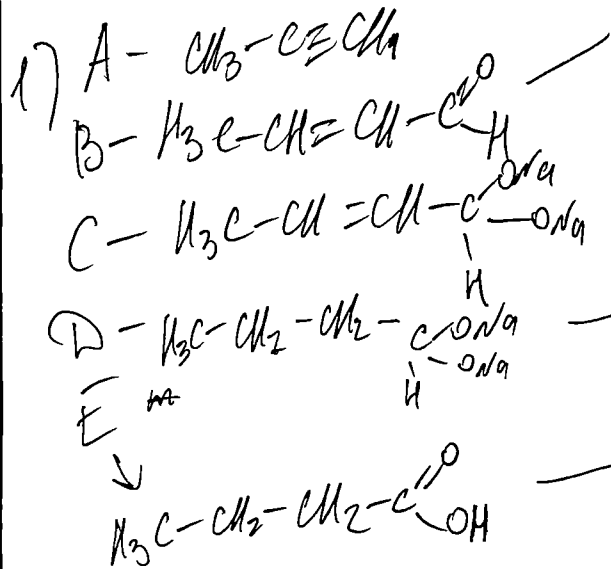 1) A - CH3-C≡CH
B - H3C-CH=CH-C=O
H
ONa
C - H3C-CH=CH-C-ONa
H
D - H3C-CH2-CH2-C-ONa
-ONa
H
E
↓
H3C-CH2-CH2-C=O
OH